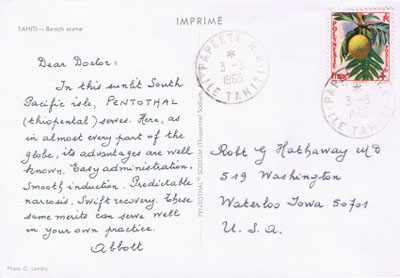 IMPRIMÉ
TAHITI — Beach scene
Dear Doctor:
In this sunlit South
Pacific isle, PENTOTHAL
(thiopental) serves. Here, as
in almost every part of the
globe, its advantages are well
known. Easy administration.
Smooth induction. Predictable
narcosis. Swift recovery. These
same merits can serve well
in your own practice.
Abbott
Photo C. Landry
PENTOTHAL® SODIUM (Thiopental Sodium,
PAPEETE R.P.
3-3
1965
ILE TAHITI
3-3
1965
ILE TAHITI
4
Robt G Hathaway MD
519 Washington
Waterloo Iowa 50701
U.S.A.